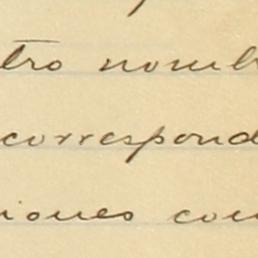 tro nomb
correspond
iones con